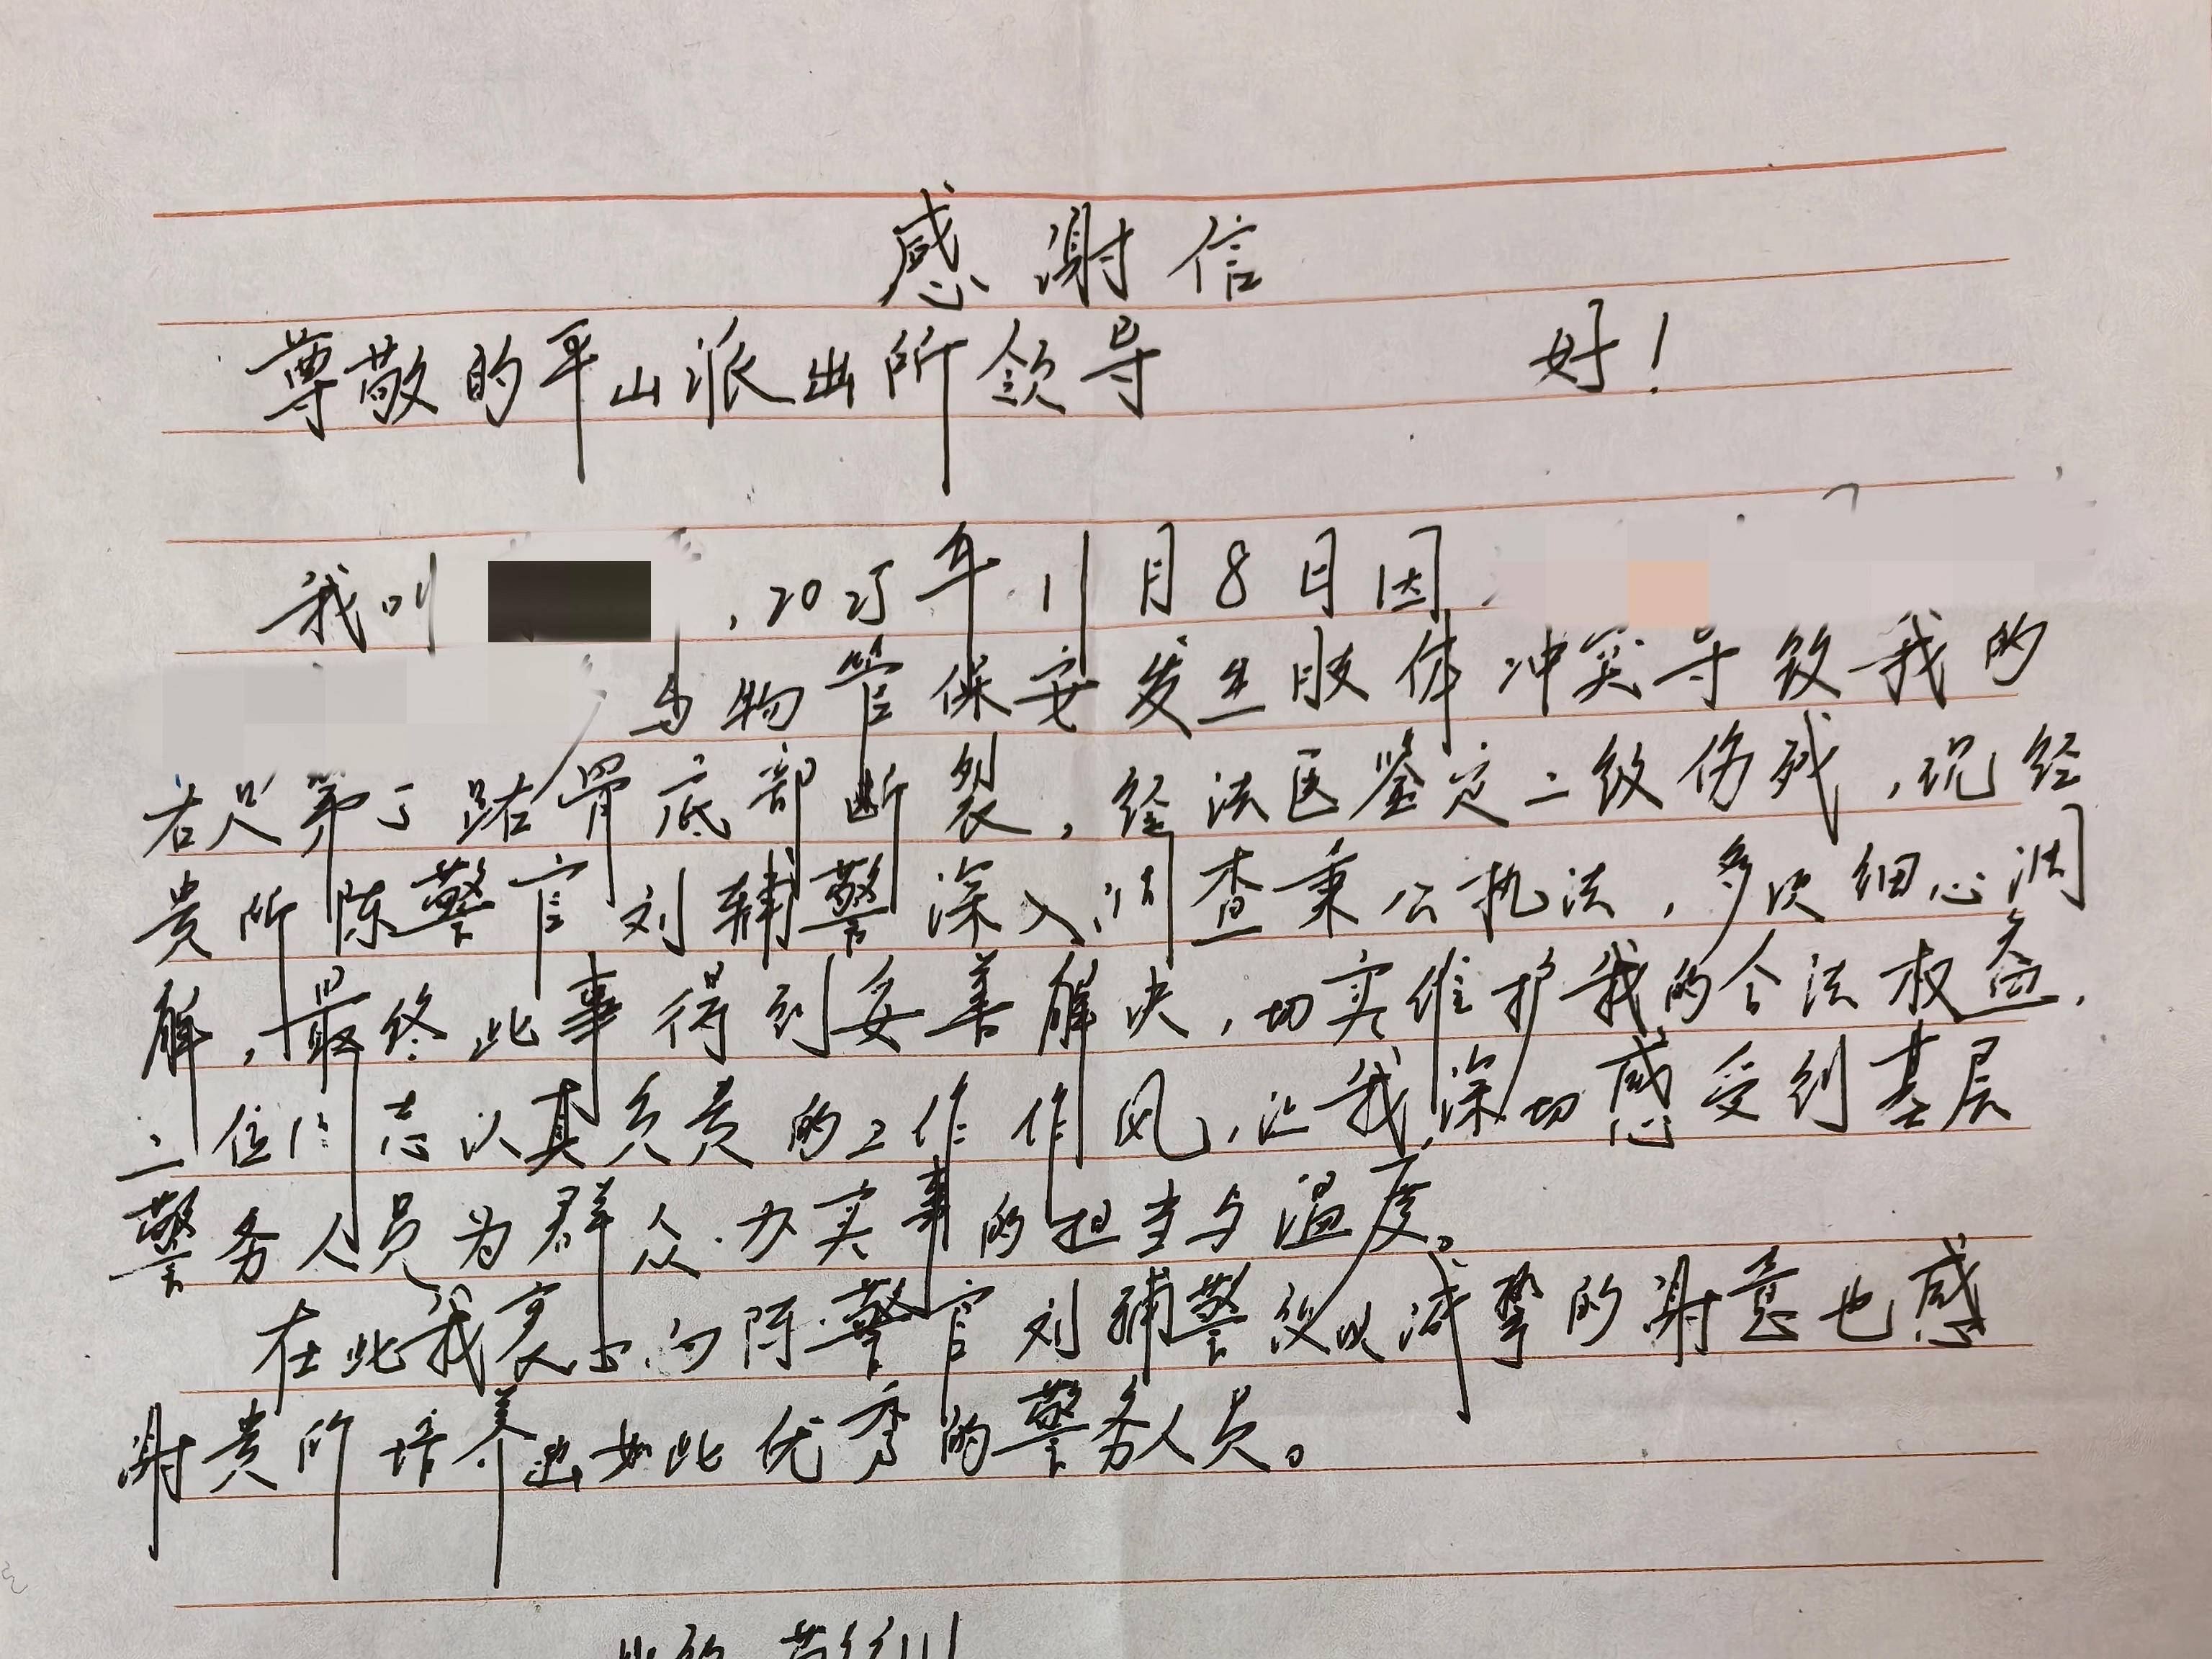 感谢信
尊敬的平山派出所领导 好！
我叫 ，2025年11月8日因
与物管保安发生肢体冲突导致我的
右足第5跖骨底部断裂，经法医鉴定二级伤残，现经
贵所陈警官刘辅警深入调查秉公执法，多次细心调
解，最终此事得到妥善解决，切实维护我的合法权益，
二位同志认真负责的工作作风，让我深切感受到基层
警务人员为群众办实事的担当与温度。
在此我衷心向陈警官刘辅警致以诚挚的谢意也感
谢贵所培养出如此优秀的警务人员。
此致 敬礼!